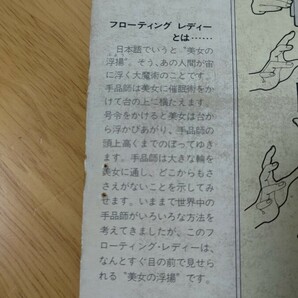 フローティング レディー
とは……
日本語でいうと“美女の
浮揚”。そう、あの人間が宙
に浮く大魔術のことです。
手品師は美女に催眠術をか
けて台の上に横たえます。
号令をかけると美女は台か
ら浮かびあがり、手品師の
頭上高くまでのぼってゆき
ます。手品師は大きな輪を
美女に通し、どこからもさ
さえがないことを示してみ
せます。いままで世界中の
手品師がいろいろな方法を
考えてきましたが、このフ
ローティング・レディーは、
なんとすぐ目の前で見せら
れる“美女の浮揚”です。